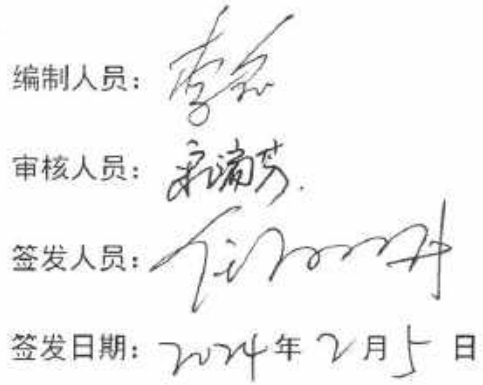 编制人员：李
审核人员：宋瑞芳
签发人员：
签发日期：2024年2月5日